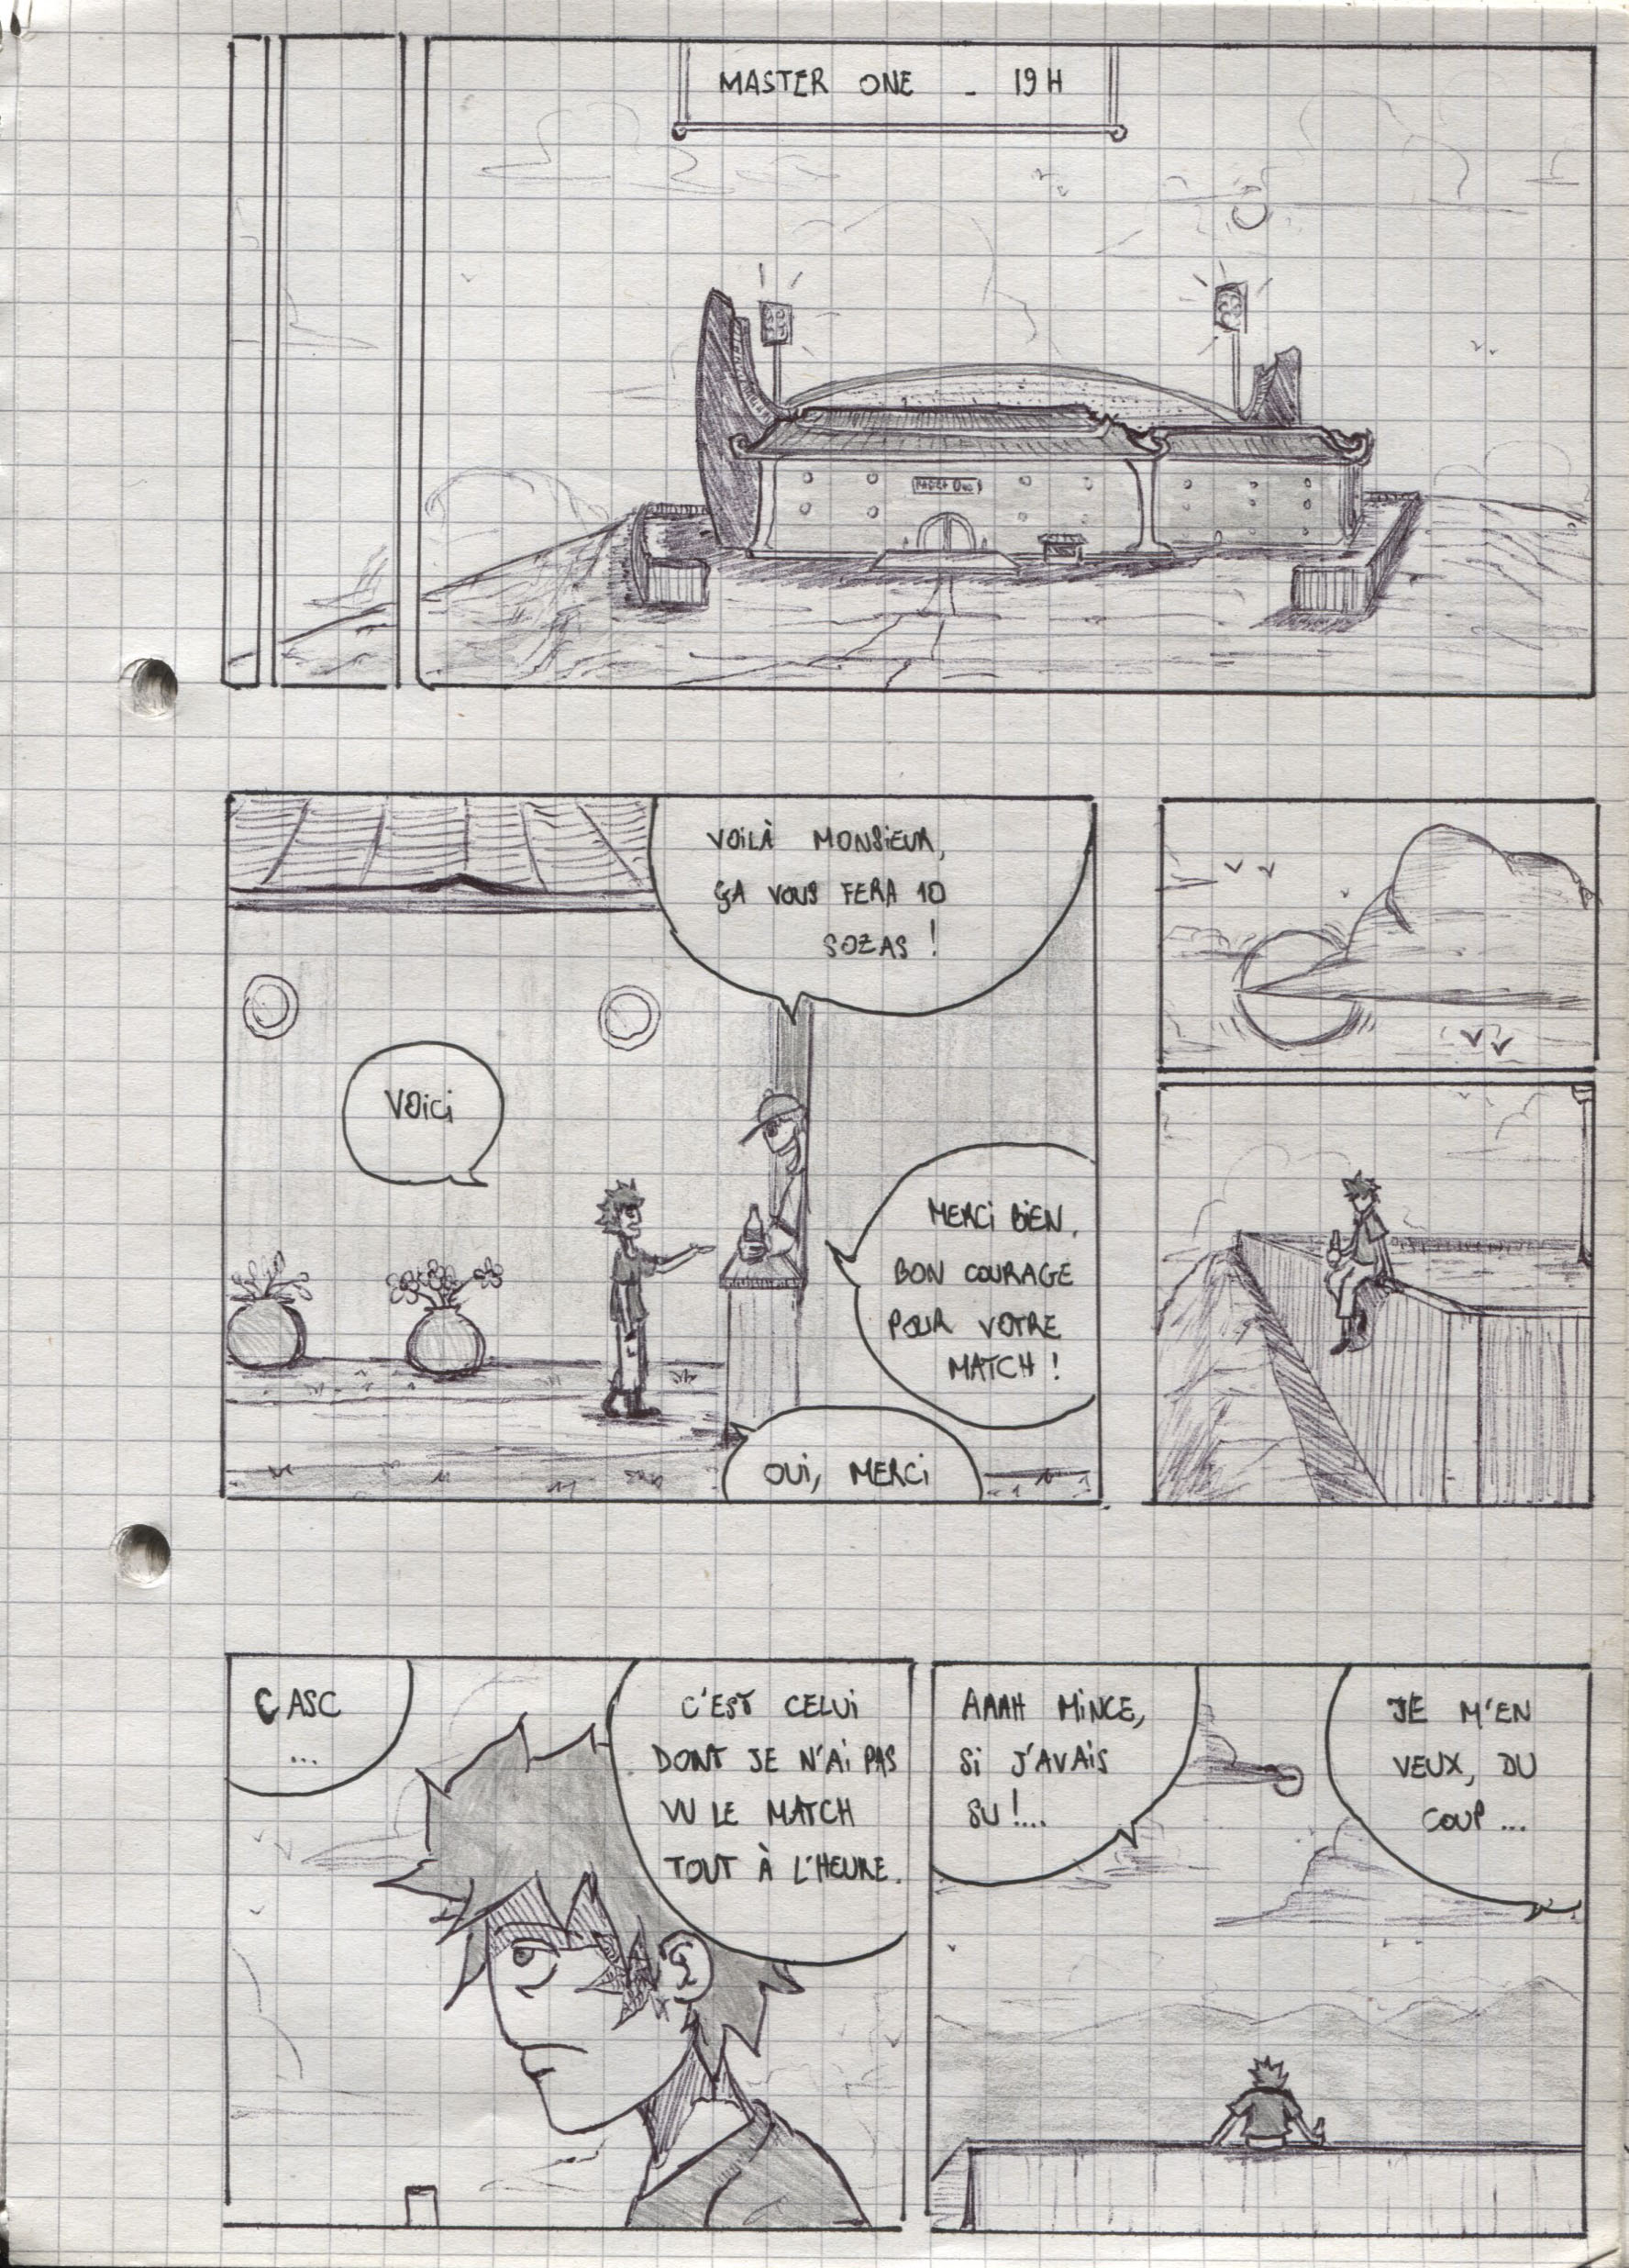 MASTER ONE - 19H
VOILÀ MONSIEUR,
ÇA VOUS FERA 10
SOZAS !
VOICI
MERCI BIEN.
BON COURAGE
POUR VOTRE
MATCH !
OUI, MERCI
CASC
...
C'EST CELUI
DONT JE N'AI PAS
VU LE MATCH
TOUT À L'HEURE.
AAAH MINCE,
SI J'AVAIS
SU !...
JE M'EN
VEUX, DU
COUP ...